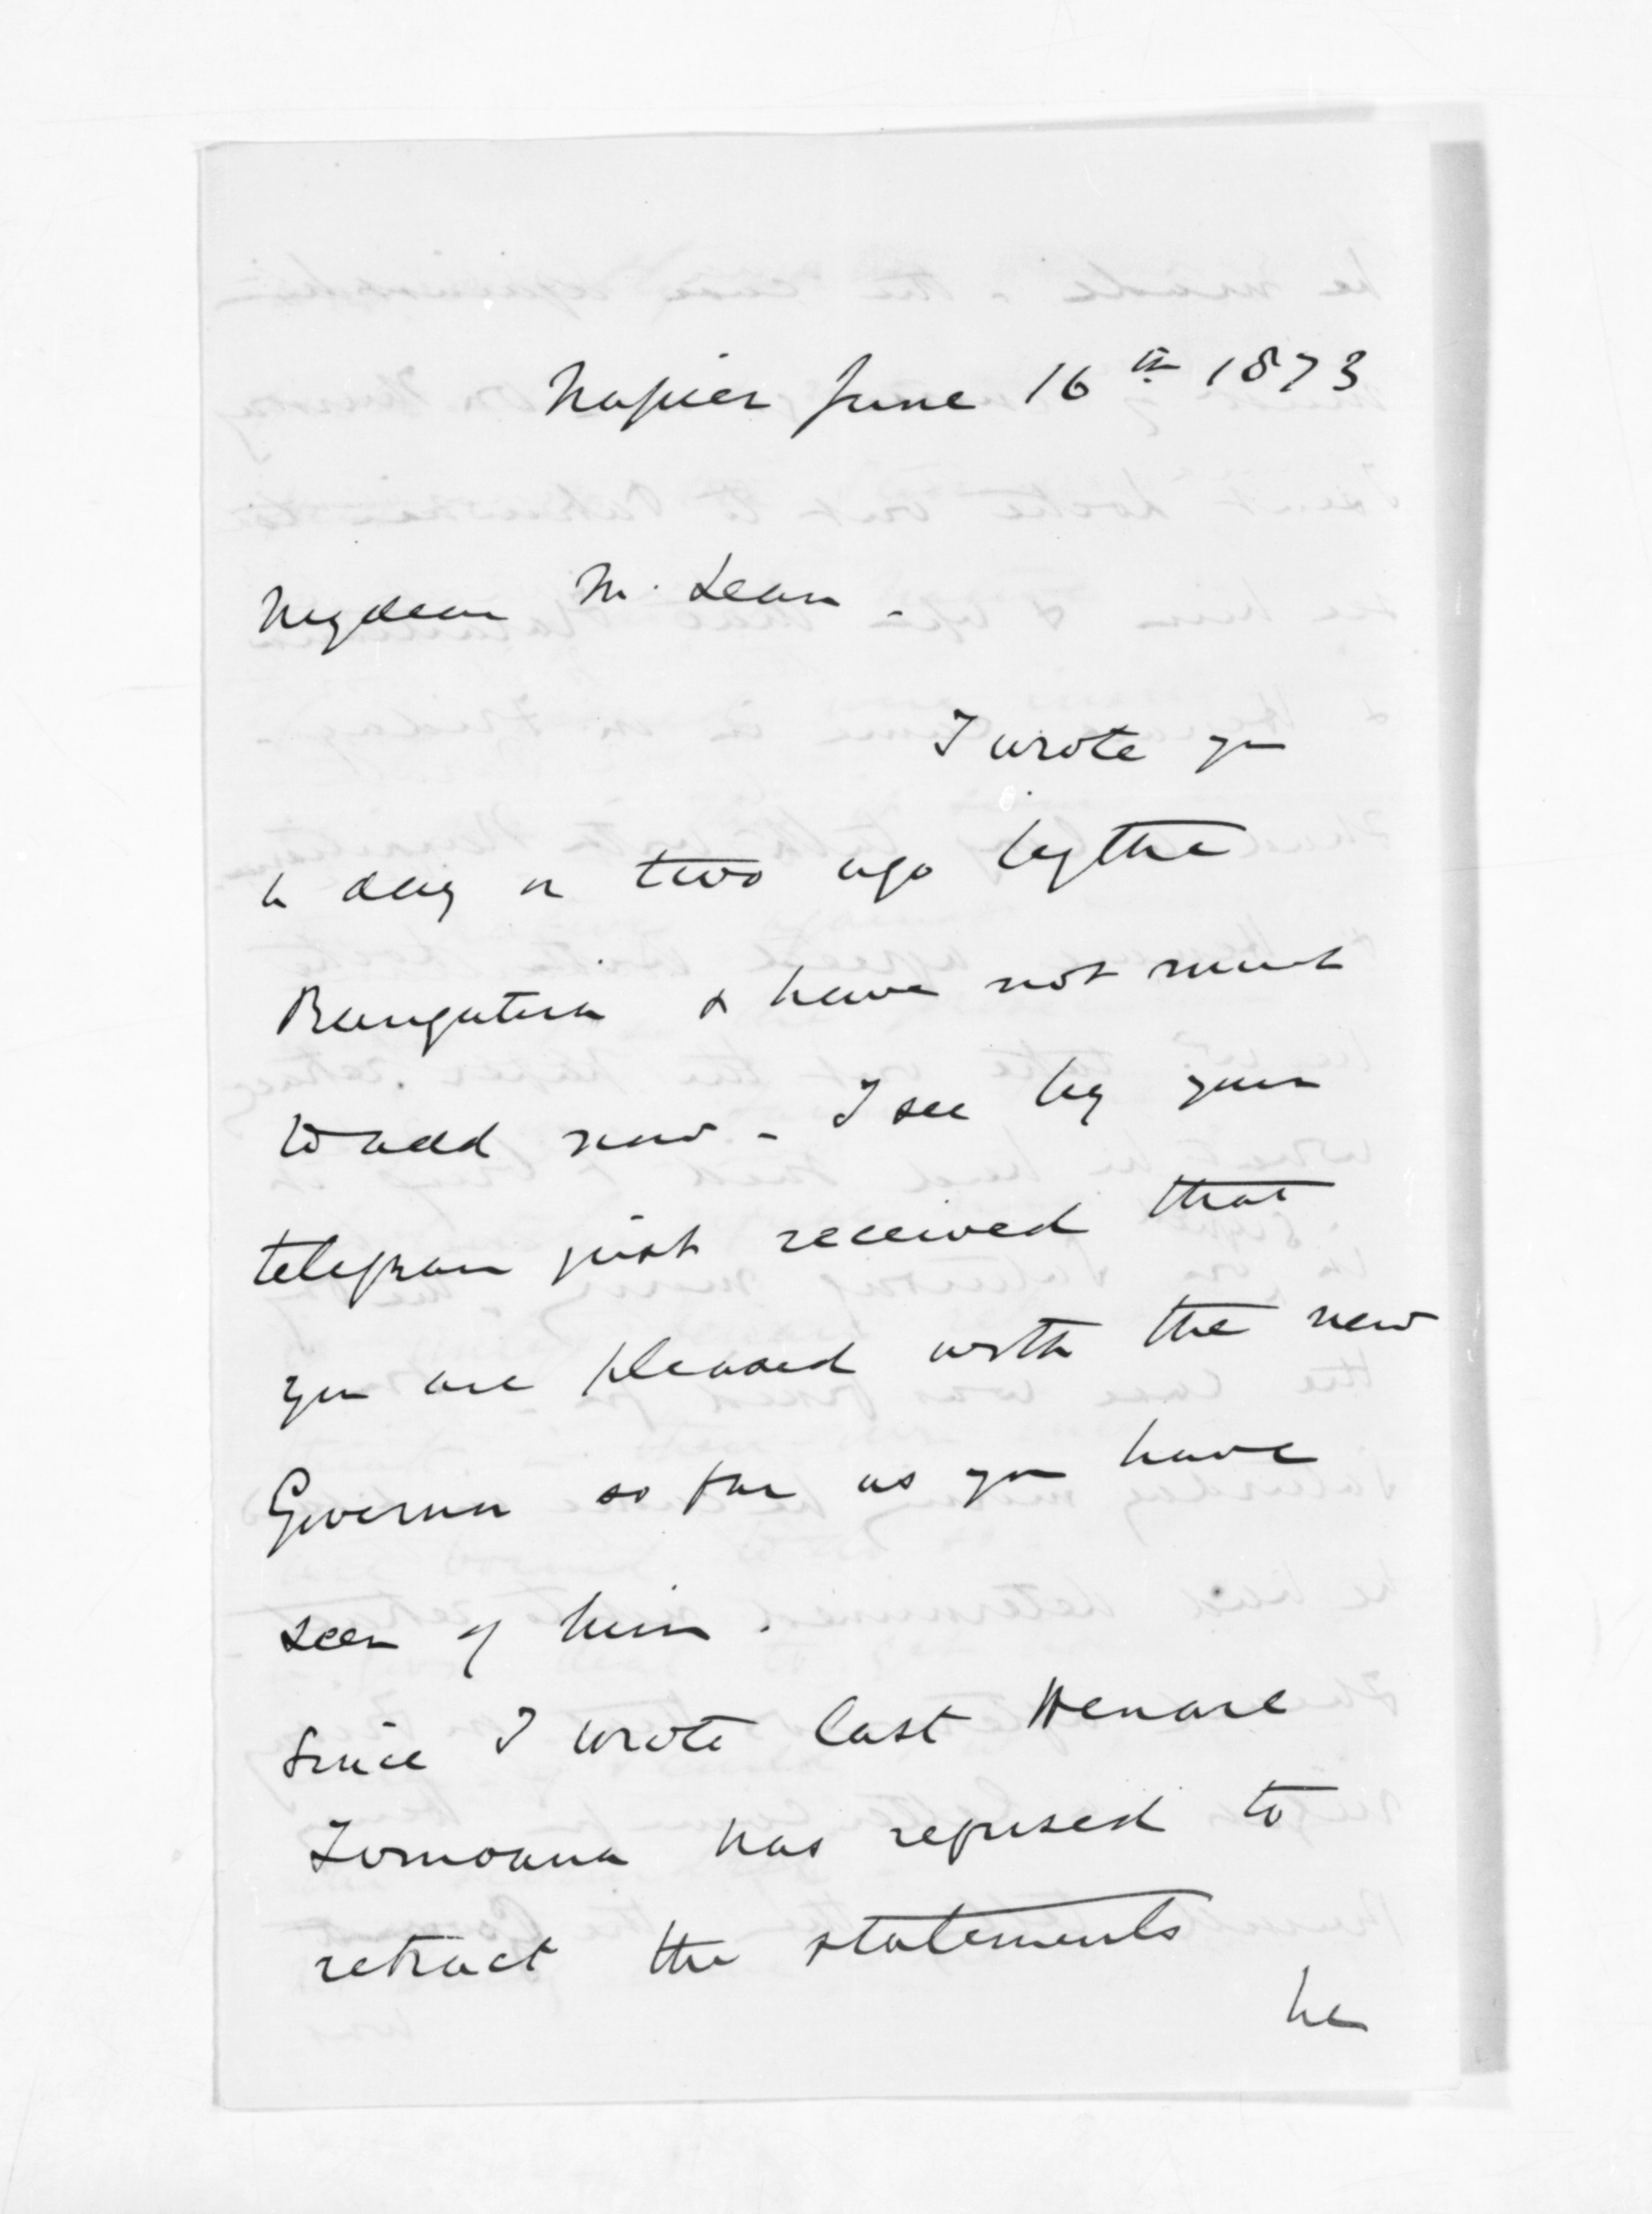 Napier June 16th 1873
My dear McLean.
I wrote you
a day or two ago by the
Rangatira & have not much
to add now - I see by your
telegram just received that
you are pleased with the new
Governor so far as you have
seen of him.
Since I wrote last Henare
Tomoana has refused to
retract the statements
he